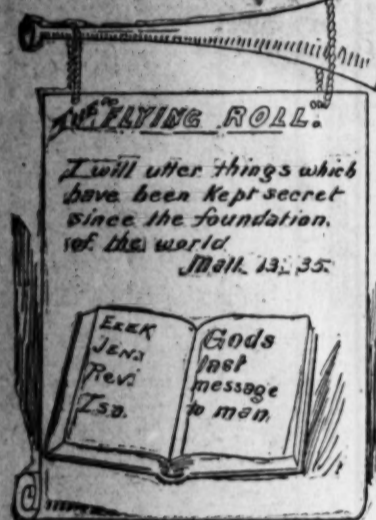 The "FLYING ROLL."
I will utter things which
have been Kept secret
since the foundation.
of the world
Matt. 13: 35.
EZEK
JENS
Rev:
Isa.
Gods
last
message
to man.